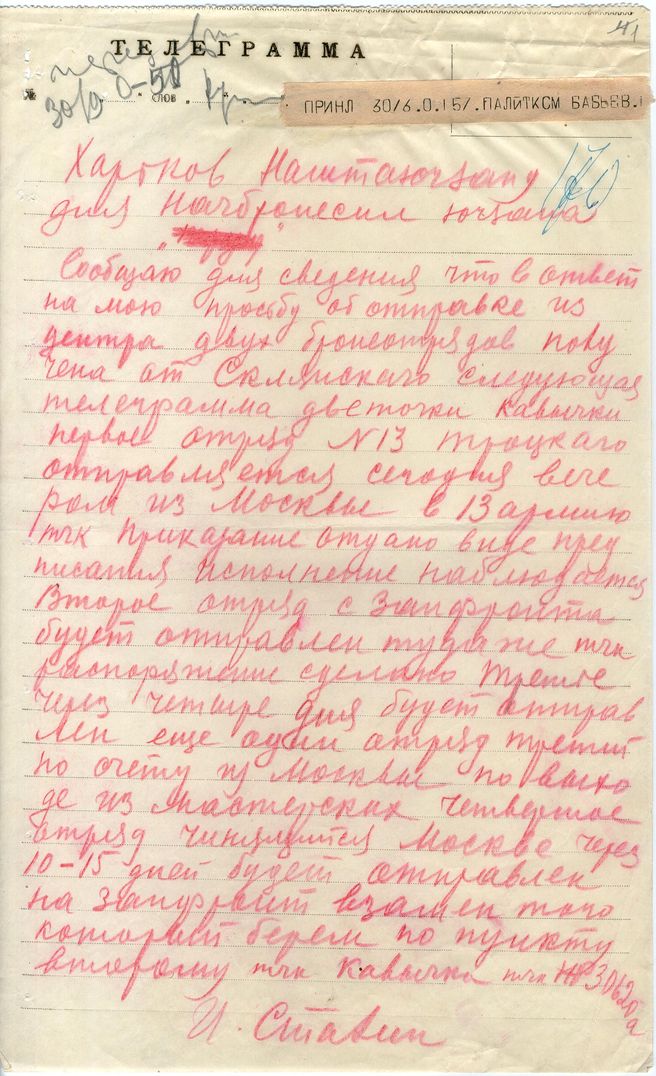 41
ТЕЛЕГРАММА
передать
30/9 0-50
№ слов
ПРИНЛ 30/6.0.15/.ПАЛИТКСМ БАБЬЕВ.
Харьков Наштаюгзапу
для Начбронесил югзапа
Сообщаю для сведения что в ответ
на мою просьбу об отправке из
центра двух бронеотрядов полу
чена от Склянскаго следующая
телеграмма две точки кавычки
первое отряд N13 троцкаго
отправляется сегодня вече
ром из Москвы в 13 армию
тчк Приказание отдано виде пред
писания Исполнение наблюдается
Второе отряд с Запфронта
будет отправлен туда же тчк
распоряжение сделано третье
через четыре дня будет отправ
лен еще один отряд третий
по счету из Москвы по выхо
де из мастерских четвертое
отряд чинящийся Москве через
10-15 дней будет отправлен
на Запфронт взамен того
который берем по пункту
второму тчк кавычки тчк
И. Сталин